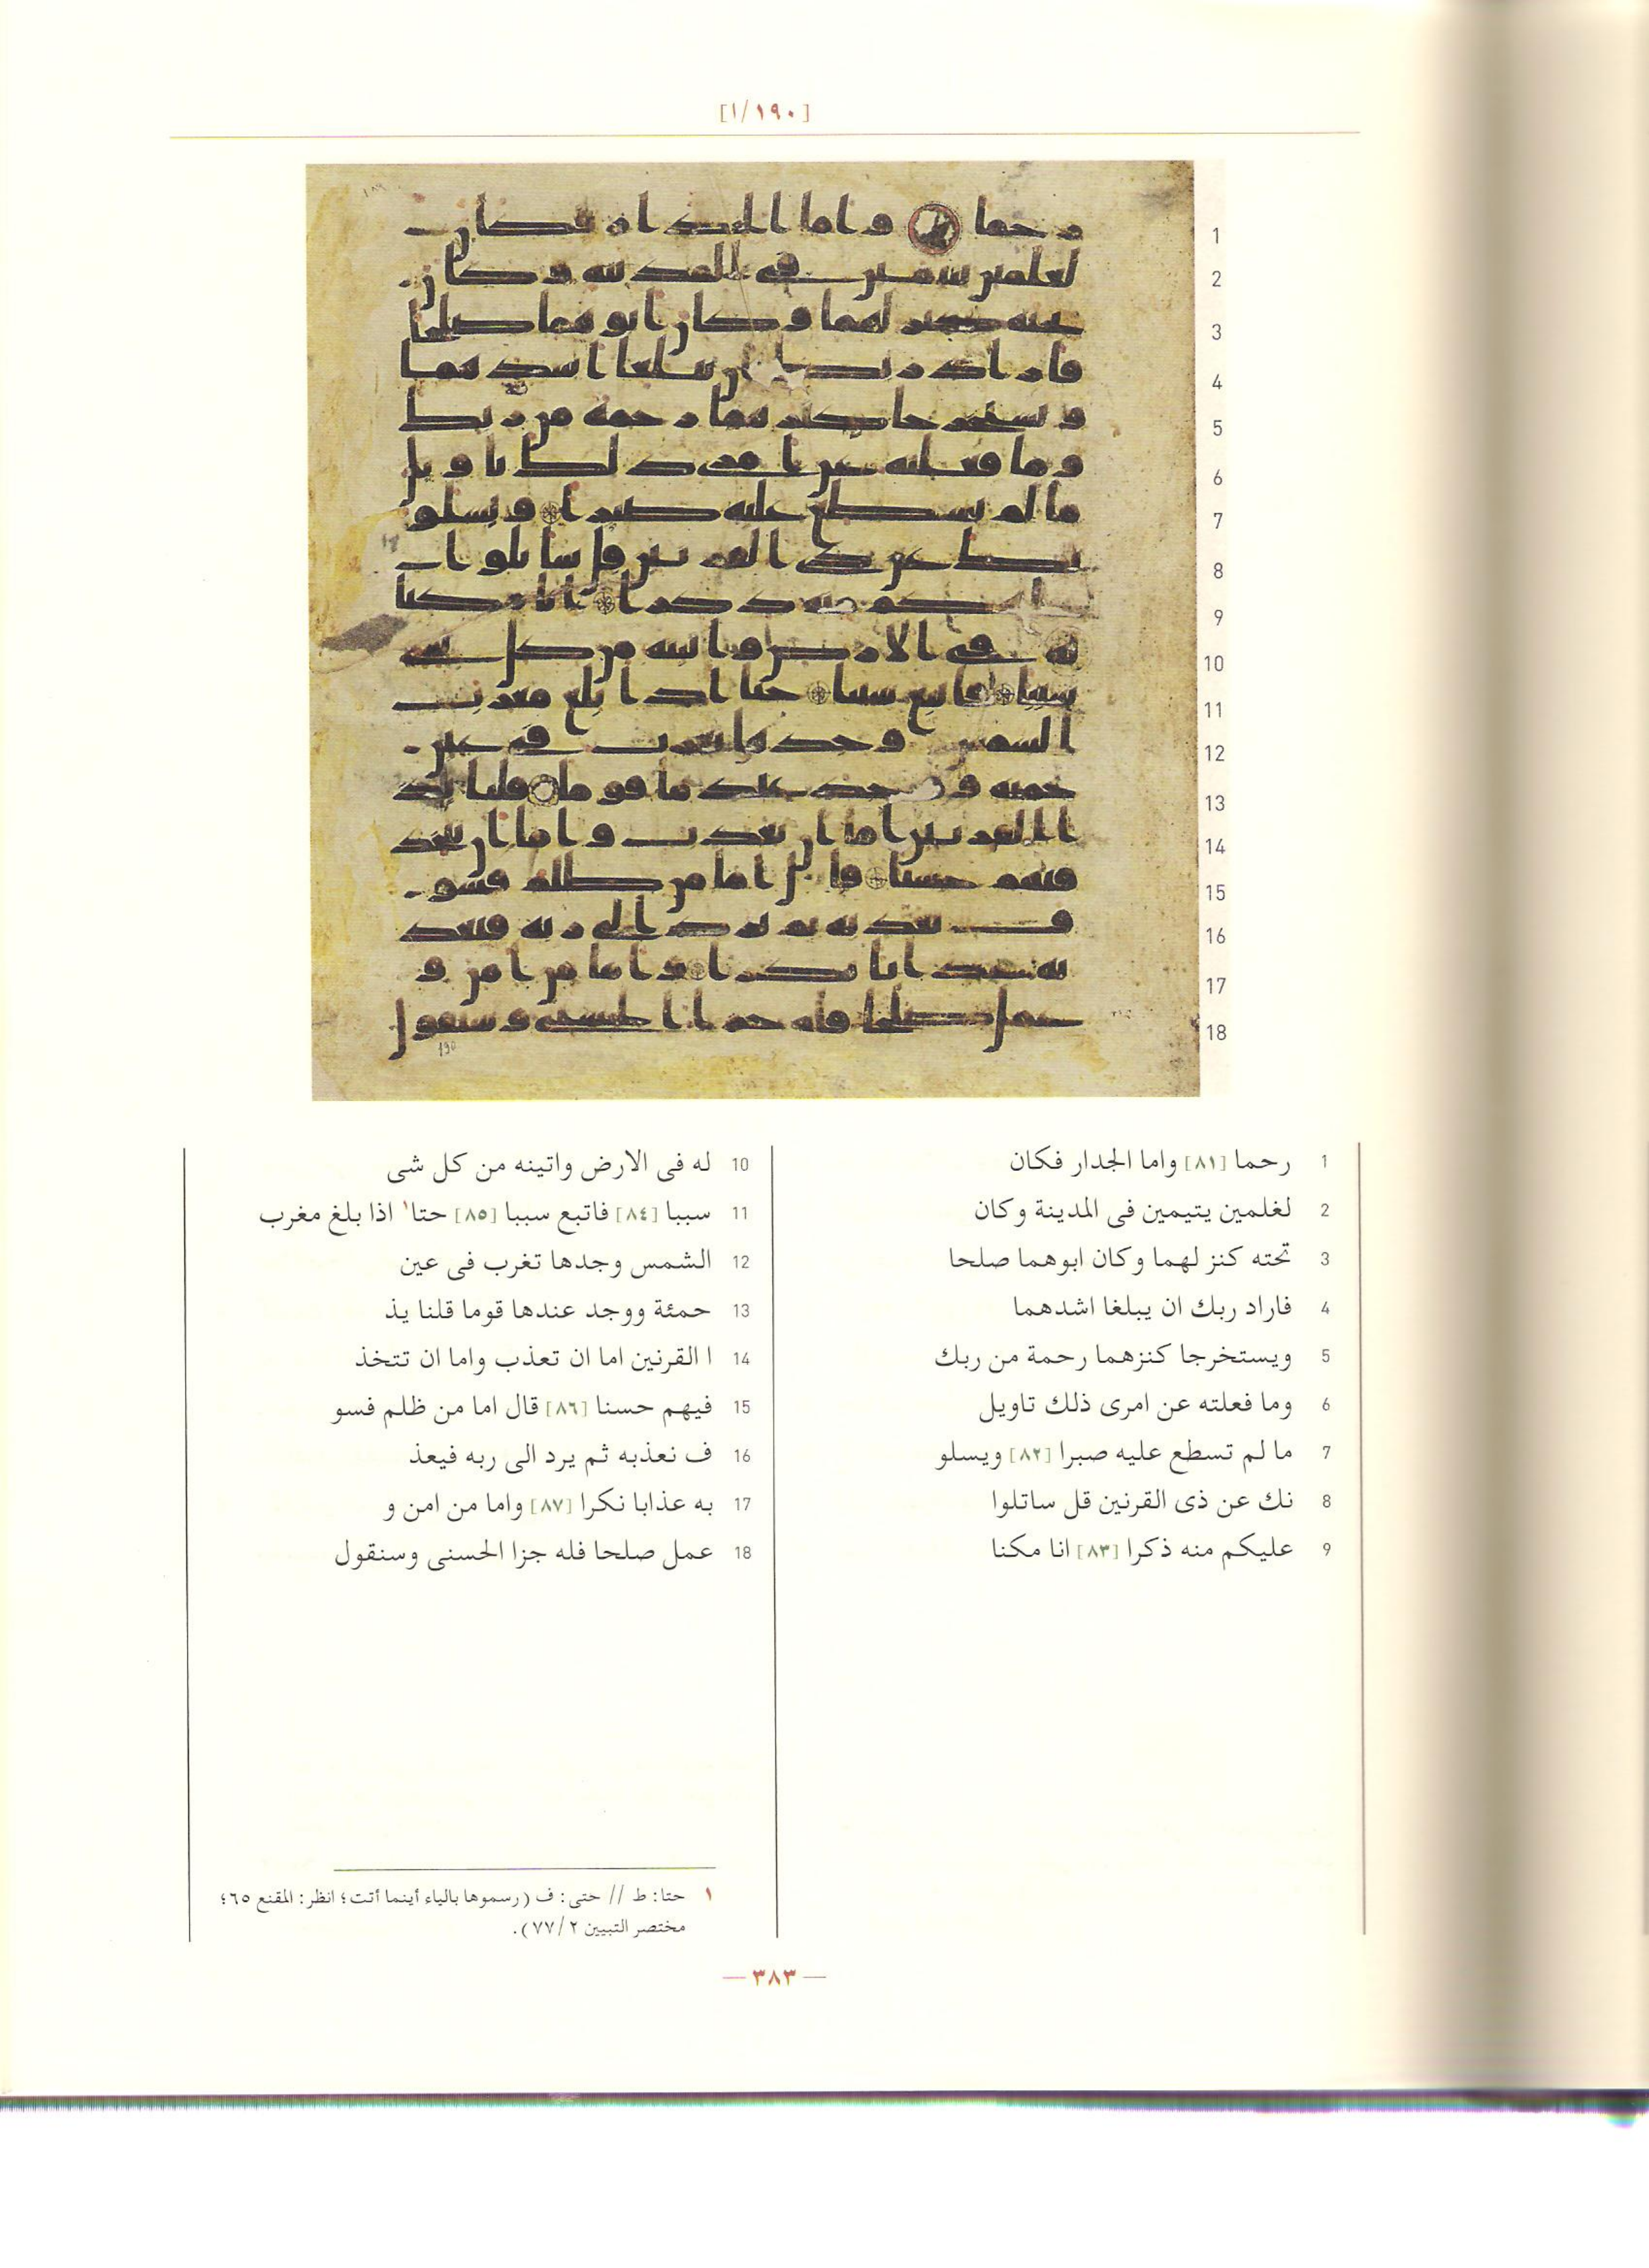 [١/١٩٠]
1 رحما [٨١] واما الجدار فكان
2 لغلمين يتيمين فى المدينة وكان
3 تحته كنز لهما وكان ابوهما صلحا
4 فاراد ربك ان يبلغا اشدهما
5 ويستخرجا كنزهما رحمة من ربك
6 وما فعلته عن امرى ذلك تاويل
7 ما لم تسطع عليه صبرا [٨٢] ويسلو
8 نك عن ذى القرنين قل ساتلوا
9 عليكم منه ذكرا [٨٣] انا مكنا
10 له فى الارض واتينه من كل شى
11 سببا [٨٤] فاتبع سببا [٨٥] حتا١ اذا بلغ مغرب
12 الشمس وجدها تغرب فى عين
13 حمئة ووجد عندها قوما قلنا يذ
14 ا القرنين اما ان تعذب واما ان تتخذ
15 فيهم حسنا [٨٦] قال اما من ظلم فسو
16 ف نعذبه ثم يرد الى ربه فيعذ
17 به عذابا نكرا [٨٧] واما من امن و
18 عمل صلحا فله جزا الحسنى وسنقول
١ حتا: ط // حتى: ف (رسموها بالياء أينما أتت؛ انظر: المقنع ٦٥؛
مختصر التبيين ٧٧/٢).
— ٣٨٣ —